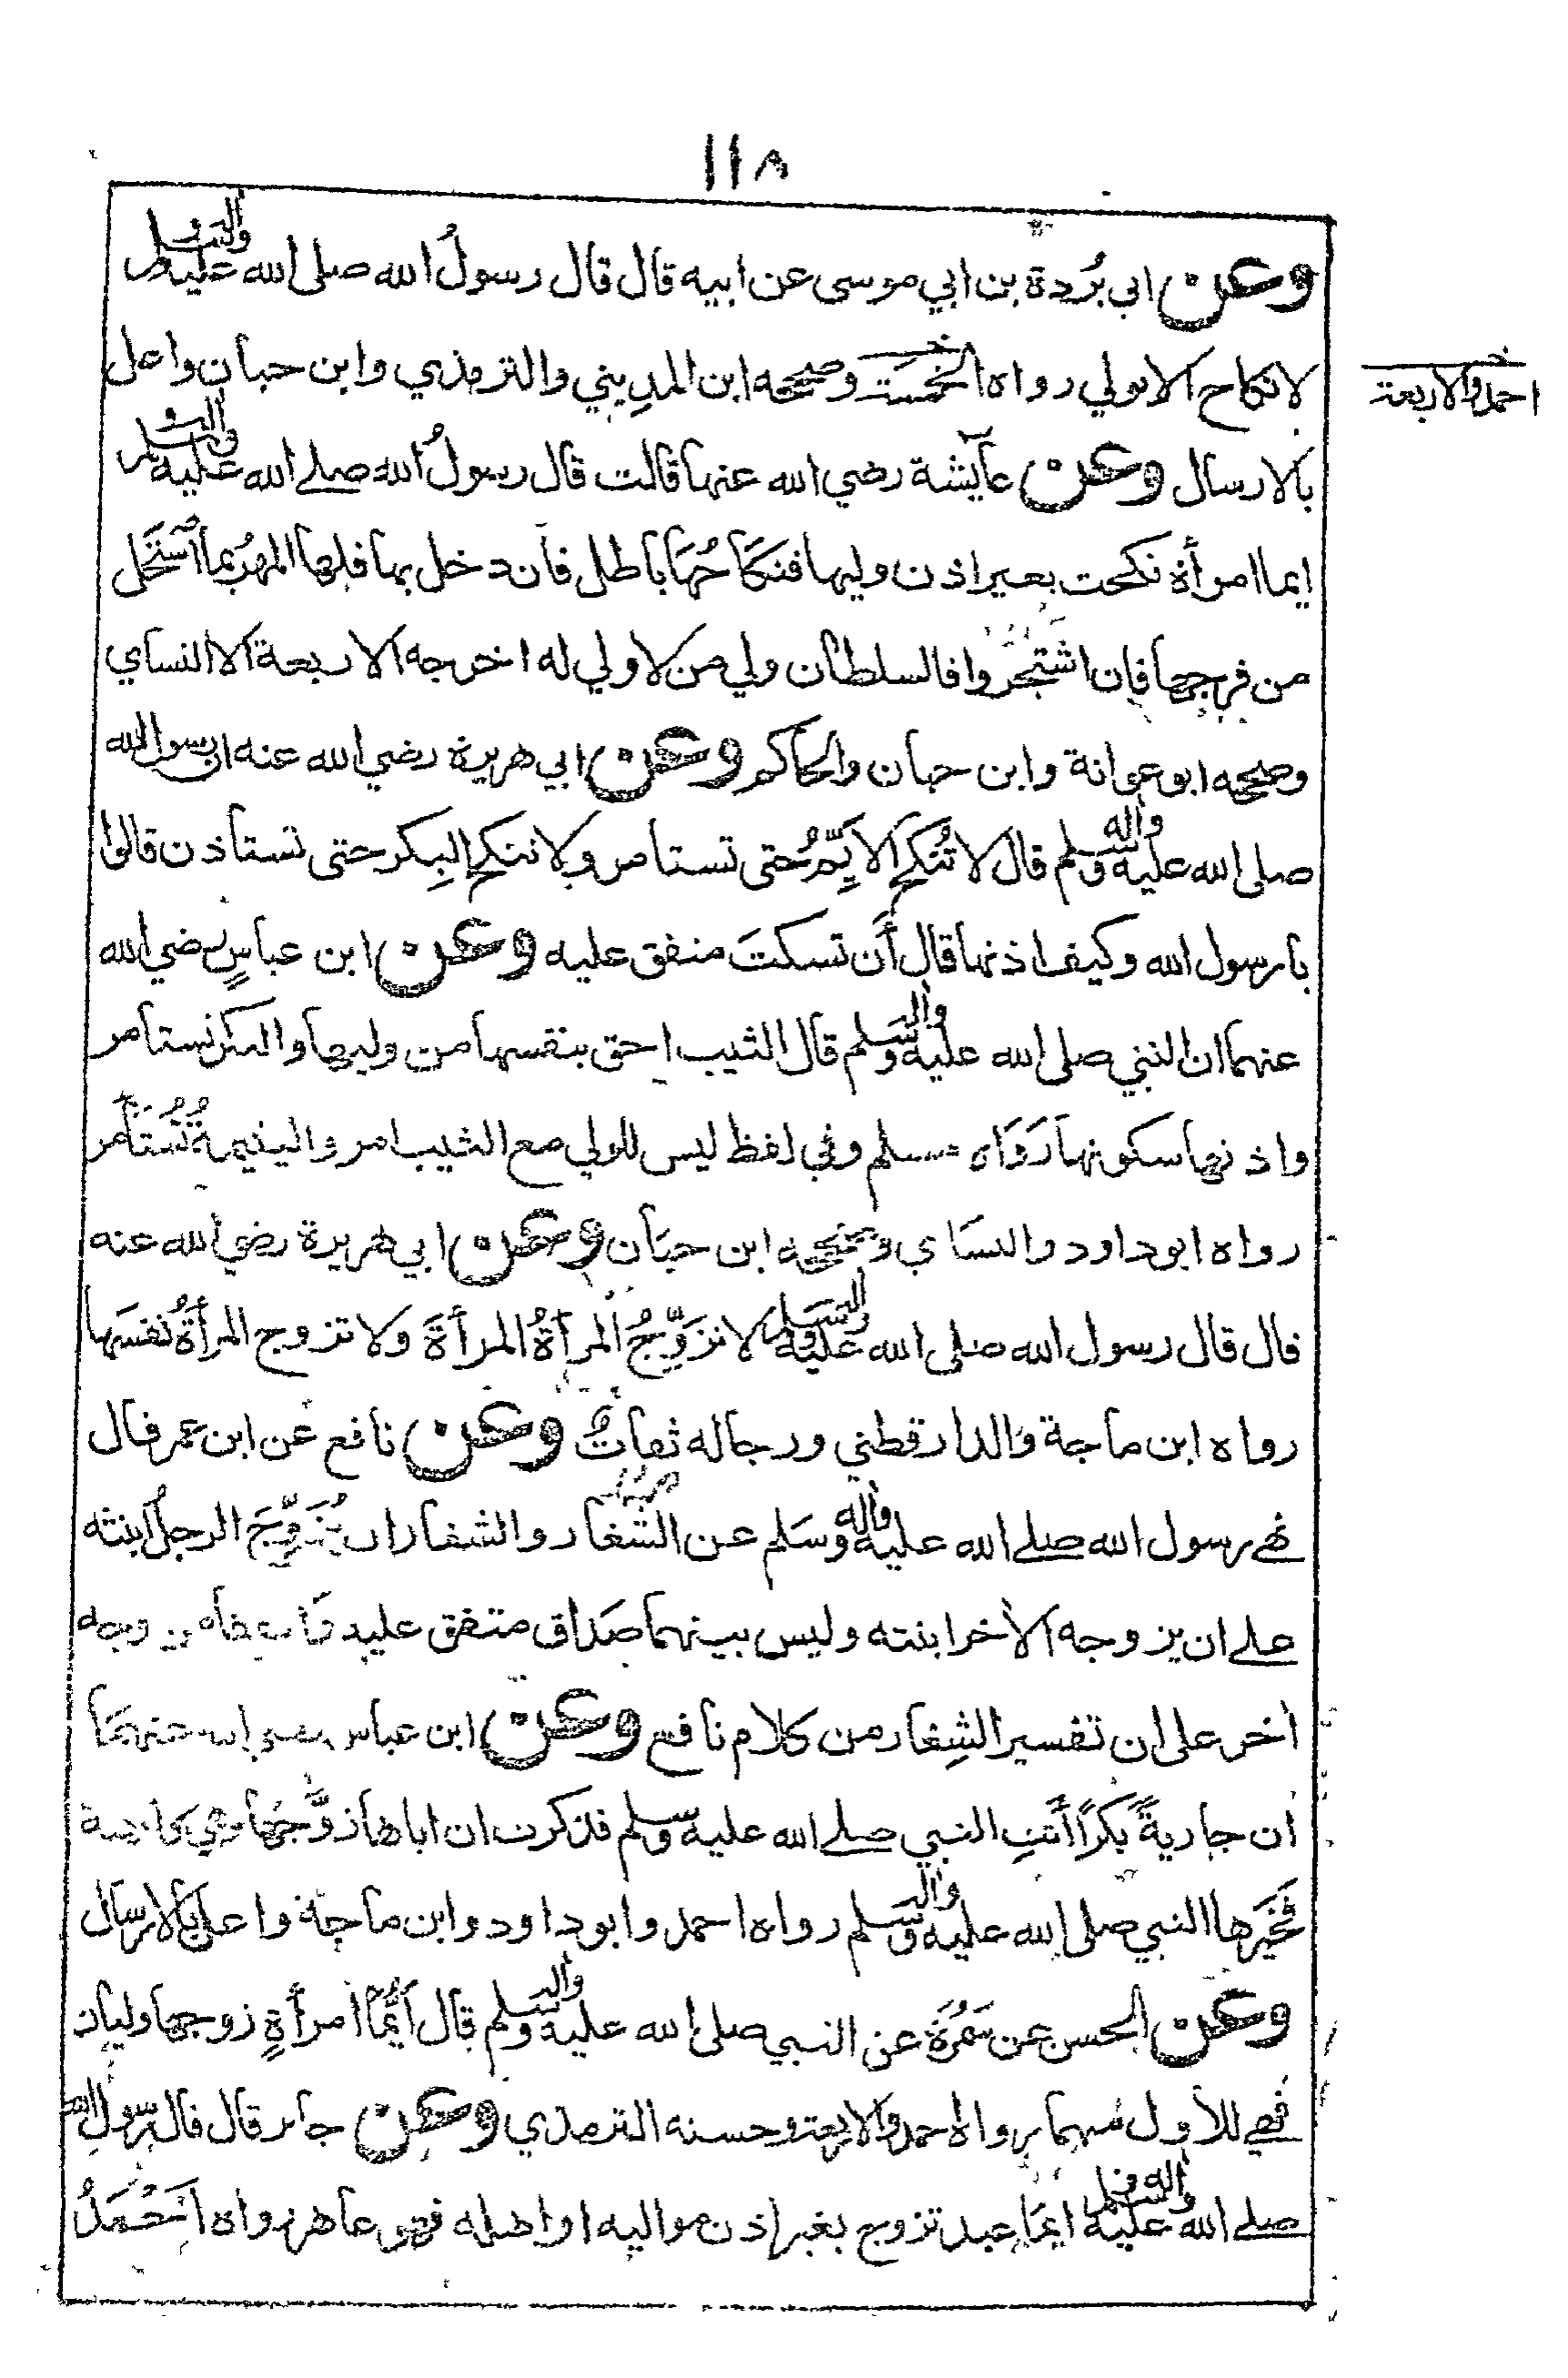 ١١٨
وعن ابي بُردة بن ابي موسى عن ابيه قال قال رسولُ الله صلى الله عليه واله وسلم
لا نكاح الا بولي رواه الخمسة وصححه ابن المديني والترمذي وابن حبان واعل
خ احمد والاربعة
بالارسال وعن عآيشة رضي الله عنها قالت قال رسولُ الله صلے الله عليه واله وسلم
ايما امرأة نكحت بغير اذن وليها فنكَاحُهَا باطل فان دخل بها فلها المهرُ بما استحَل
من فرجها فان اشتجَروا فالسلطان ولي من لا ولي له اخرجه الاربعة الا النساي
وصححه ابو عوانة وابن حبان والحاكم وعن ابي هريرة رضي الله عنه ان رسول الله
صلى الله عليه واله وسلم قال لا تُنكح الايِّمُ حتى تستامر ولا تنكح البِكر حتى تستاذن قالوا
يا رسول الله وكيف اذنها قال أن تسكتَ متفق عليه وعن ابن عباسٍ رضي الله
عنهما ان النبي صلى الله عليه واله وسلم قال الثيب احق بنفسها من وليها والبكر تستامر
واذنها سكوتها رَوَاه مسلم وفي لفظ ليس للولي مع الثيب امر واليتيمةُ تُستَأمر
رواه ابو داود والنسَاي وصححه ابن حبَان وعن ابي هريرة رضي الله عنه
قال قال رسول الله صلى الله عليه واله وسلم لا تزَوِّجُ المرأةُ المرأةَ ولا تزوج المرأةُ نفسَها
رواه ابن ماجة والدارقطني ورجاله ثقاتٌ وعن نافع عَن ابن عمر قال
نهے رسول الله صلے الله عليه واله وسَلم عن الشغار والشغار ان يُزَوِّجَ الرجلُ ابنته
علے ان يزوجه الاخر ابنته وليس بينهما صَداق متفق عليه واتفقا من وجه
اخر على ان تفسير الشِغار من كلام نافع وعن ابن عباس رضي الله عنهمَا
ان جاريةً بكرًا أتتِ النبي صلے الله عليه وسلم فذكرت ان اباها زوَّجَها وهي كارهة
فخَيَّرها النبي صلى الله عليه واله وسلم رواه احمد وابو داود وابن ماجة واعل بالارسال
وعن الحسن عن سَمُرَة عن النبي صلى الله عليه واله وسلم قال أيُّما امرأةٍ زوجها وليان
فهي للأول منهما رواه احمد والاربعة وحسنه الترمذي وعن جابر قال قال رسول الله
صلے الله عليه واله وسلم ايمَا عبد تزوج بغير اذن مواليه او اهله فهو عاهر رواه احْمَدُ